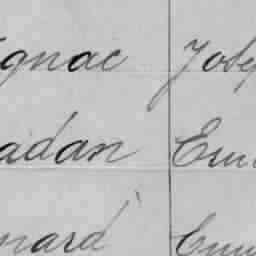 gnac Jose
adan Emi
nard Emi